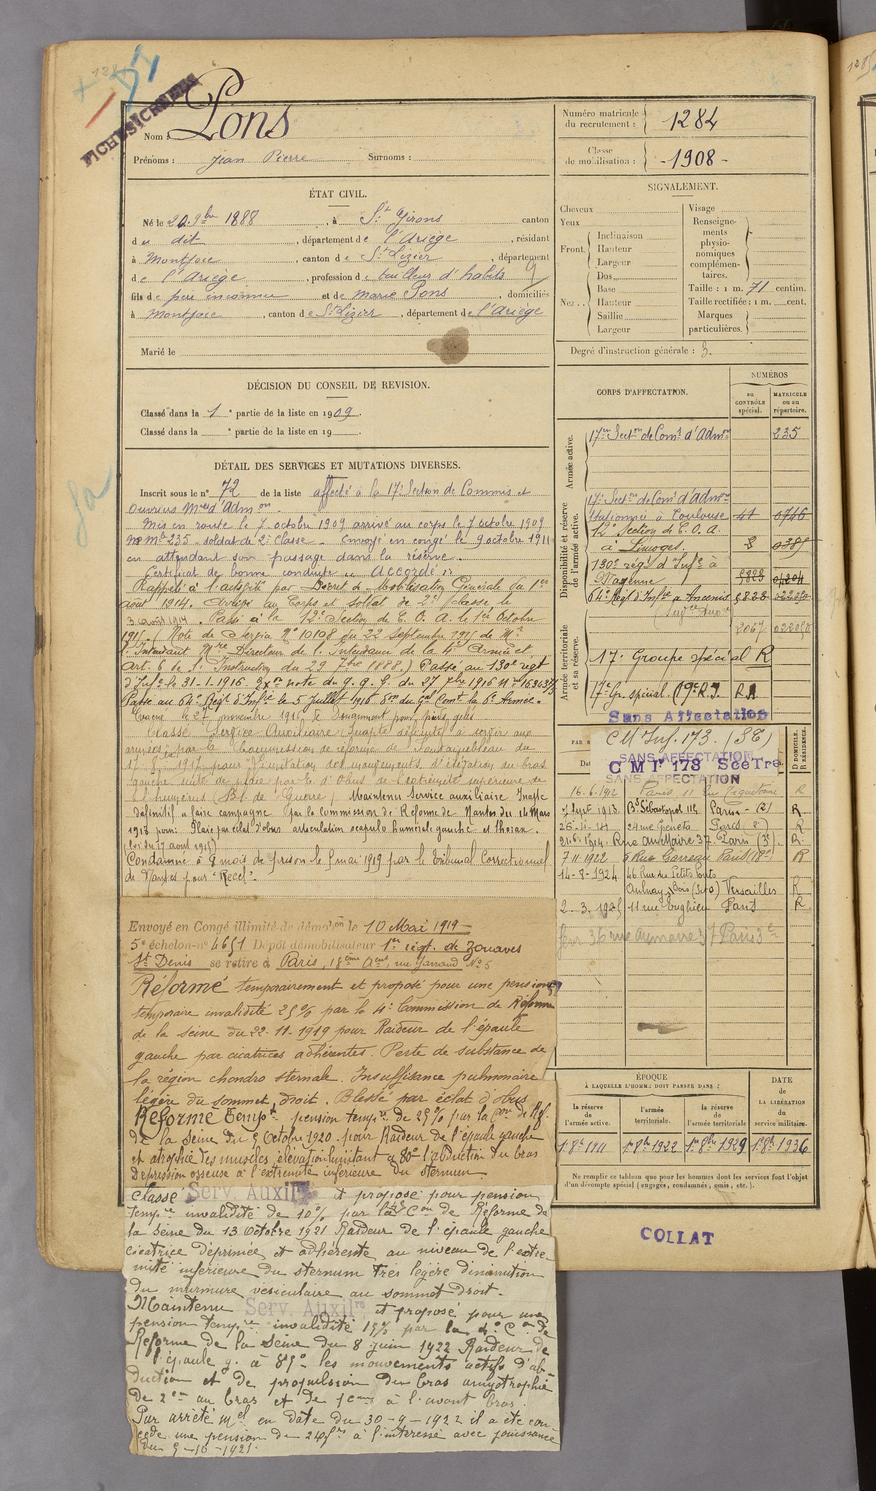 FICHES SCANNÉES
Nom : Pons
Prénoms : Jean Pierre Surnoms :
Numéro matricule du recrutement : 1284
Classe de mobilisation : -1908-
ÉTAT CIVIL.
Né le 20 9bre 1888, à St Girons canton
du dit, département de l'Ariège, résidant
à Montjoie, canton de St Lizier, département
de l'Ariège, profession de tailleur d'habits
fils de père inconnu et de Marie Pons, domiciliés
à Montjoie, canton de St Lizier, département de l'Ariège
Marié le
SIGNALEMENT.
Cheveux
Yeux
Front.
Inclinaison
Hauteur
Largeur
Nez..
Dos
Base
Hauteur
Saillie
Largeur
Visage
Renseignements physionomiques complémentaires.
Taille : 1 m. 71 centim.
Taille rectifiée : 1 m. cent.
Marques particulières.
Degré d'instruction générale : 3.
DÉCISION DU CONSEIL DE REVISION.
Classé dans la 1e partie de la liste en 1909.
Classé dans la e partie de la liste en 19
DÉTAIL DES SERVICES ET MUTATIONS DIVERSES.
Inscrit sous le n° 72 de la liste affecté à la 17e Section de Commis et
Ouvriers Mres d'Admon.
Mis en route le 7 octobre 1909 arrivé au corps le 7 octobre 1909
No Mle 235 soldat de 2e classe. Envoyé en congé le 9 octobre 1911
en attendant son passage dans la réserve.
Certificat de bonne conduite "Accordé"
Rappelé à l'activité par Décret de Mobilisation Générale du 1er
août 1914. Arrivé au Corps et soldat de 2e classe le
3 août 1914. Passé à la 12e Section de C. O. A. le 1er Octobre
1915. (Note de Service No 10108 du 22 Septembre 1915 de Mr
l'Intendant Mre Directeur de l'Intendance de la 4e Armée et
Art. 6 de l'Instruction du 29 7bre 1888.) Passé au 130e régt
d'Infie le 31-1-1916.
Passé au 64e Régt d'Infie le 5 Juillet 1916
Evacué le 27 novembre 1916
Classé Service Auxiliaire Inapte
par la Commission de réforme de Fontainebleau du
1917 pour limitation des mouvements d'élévation du bras
gauche suite de plaie par E. d'Obus de l'extrémité supérieure de
l'humérus (Bl. de Guerre) Maintenu Service auxiliaire Inapte
définitif à faire campagne par la Commission de Réforme de Nantes du 14 Mars
1918 pour : Plaie par éclat d'obus articulation scapulo humérale gauche et thorax.
(Loi du 17 aout 1915)
Condamné à 2 mois de prison le 5 mai 1919 par le Tribunal Correctionnel
de Nantes pour "Recel".
Envoyé en Congé illimité de démobon le 10 Mai 1919 -
5e échelon - n° 4651 Dépôt démobilisateur 1er régt. de Zouaves
St Denis se retire à Paris, 18ème Arrt, rue
Réformé temporairement et proposé pour une pension
temporaire invalidité 25% par la 4e Commission de Réforme
de la Seine du 22-11-1919 pour Raideur de l'épaule
gauche par cicatrices adhérentes. Perte de substance de
la région chondro sternale. Insuffisance pulmonaire
légère du sommet droit. Blessé par éclat d'obus
Réformé tempt pension tempre de 25% par la Con de Réf.
de la Seine du 9 Octobre 1920 pour Raideur de l'épaule gauche
et atrophie des muscles élévation limitant à 80° l'abduction du bras
Dépression osseuse à l'extrémité inférieure du sternum
Classé Serv. Auxilre et proposé pour pension
tempre invalidité de 10% par la 4e Con de Réforme de
la Seine du 13 Octobre 1921 Raideur de l'épaule gauche
cicatrice déprimée et adhérente au niveau de l'extré
mité inférieure du sternum très légère diminution
du murmure vésiculaire au sommet droit.
Maintenu Serv. Auxilre et proposé pour une
pension tempre invalidité 15% par la 4e Con de
Réforme de la Seine du 8 juin 1922 Raideur de
l'épaule g. à 85° les mouvements actifs d'ab
duction et de propulsion du bras amyotrophie
de 2cm au bras et de 1cm à l'avant bras.
Par arrêté Mel en date du 30-9-1922 il a été con
cédé une pension de 240frs à l'intéressé avec jouissance
du 9-10-1921.
CORPS D'AFFECTATION.
NUMÉROS
au CONTRÔLE spécial.
MATRICULE ou au répertoire.
Armée active.
17e Secton de Comis d'Admon 235
Disponibilité et réserve de l'armée active.
17e Secton de Comis d'Admon
Stationnée à Toulouse 41 0746
12e Section de C. O. A.
à Limoges
130e régt d'Infie à
Mayenne
64e Régt d'Infie à Ancenis
Armée territoriale et sa réserve.
17e Groupe spécial R
17e Gr. spécial
Sans Affectation
C M Inf. 173. (SE)
SANS AFFECTATION
C M Ie 178 Scé Tre
SANS AFFECTATION
D DOMICILE.
R RÉSIDENCE.
16-6-1912 Paris, 11 R
7 Sept 1913 Bd Sébastopol 114 Paris R
Rue au Maire 37 Paris (3e) R
7 11 1922 Paris (18e) R
14-8-1924 46 Rue des Petits Ponts
Aulnay s/Bois (S&O) Versailles R
2. 3. 1925 11 rue Enghien Paris R
36 rue Aumaire 37 Paris 3e
ÉPOQUE
À LAQUELLE L'HOMME DOIT PASSER DANS :
la réserve de l'armée active.
l'armée territoriale.
la réserve de l'armée territoriale
DATE de LA LIBÉRATION du service militaire.
1er 8bre 1911
1er 8bre 1922
1er 8bre 1929
1er 8bre 1936
Ne remplir ce tableau que pour les hommes dont les services font l'objet
d'un décompte spécial (engagés, condamnés, omis, etc.).
COLLAT